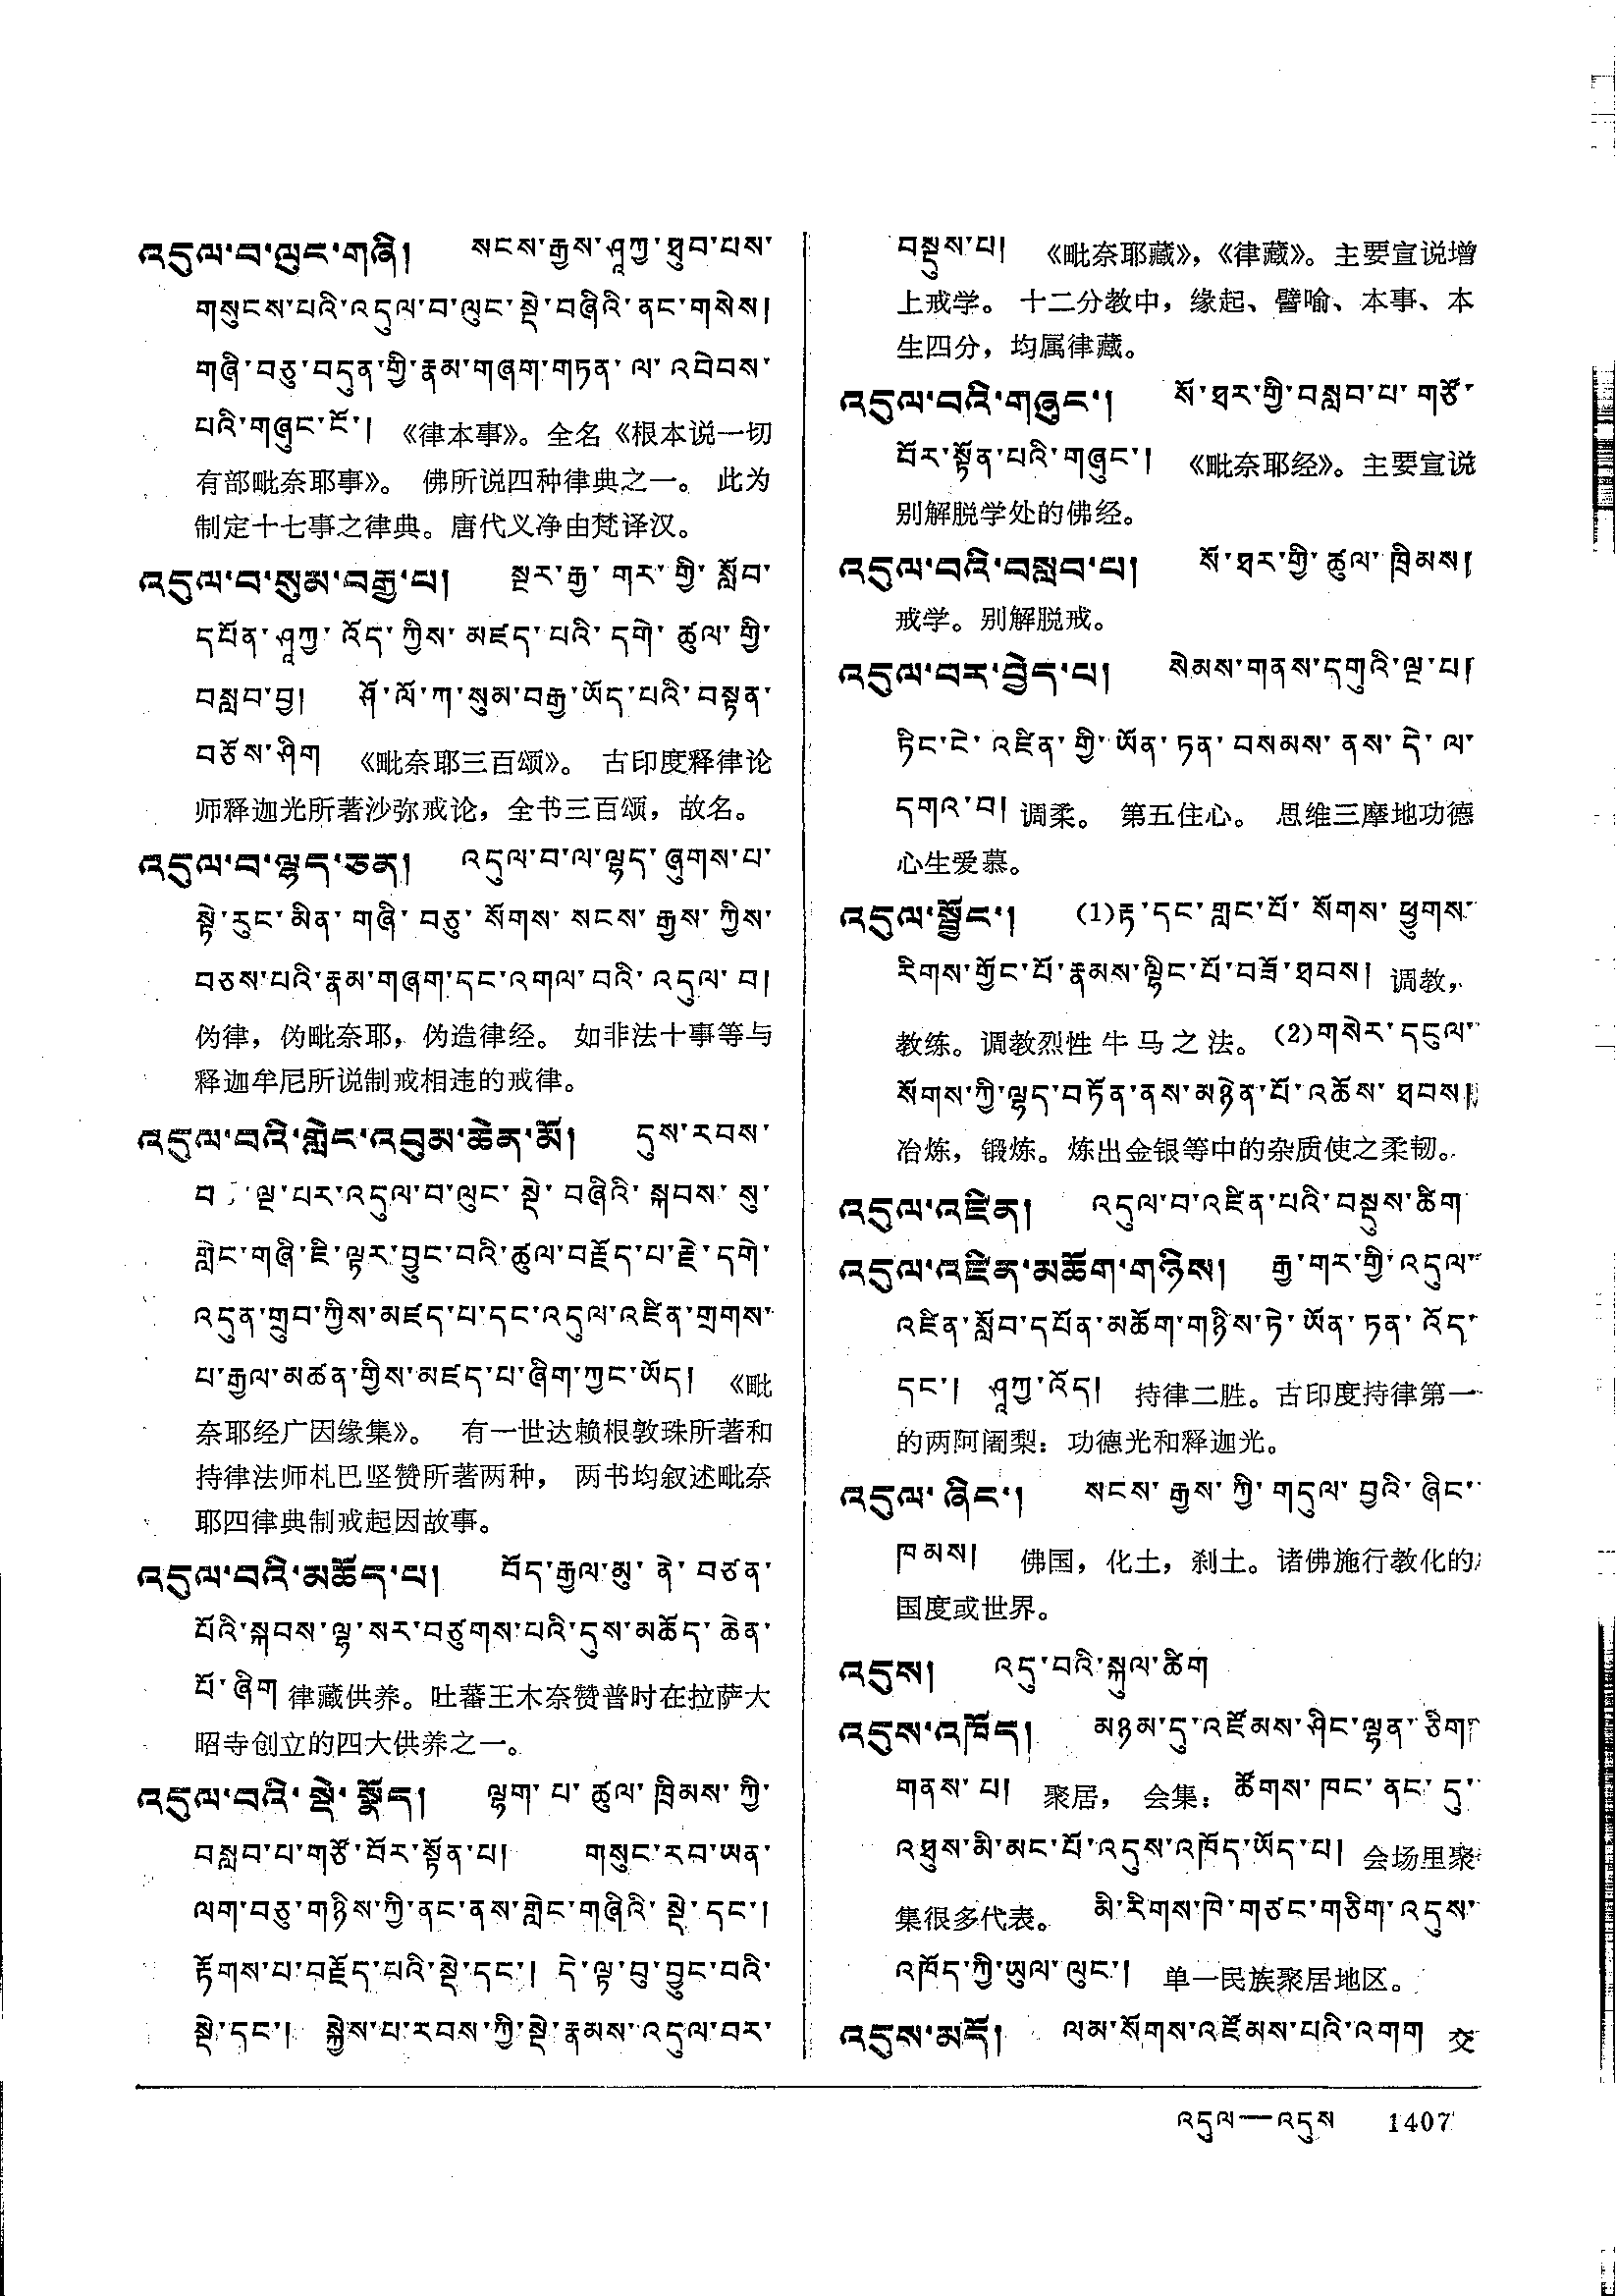 འདུལ་བ་ལུང་གཞི། སངས་རྒྱས་ཤཱཀྱ་ཐུབ་པས་
གསུངས་པའི་འདུལ་བ་ལུང་སྡེ་བཞིའི་ནང་གསེས།
གཞི་བཅུ་བདུན་གྱི་རྣམ་གཞག་གཏན་ལ་འབེབས་
པའི་གཞུང་ངོ་། 《律本事》。全名《根本说一切
有部毗奈耶事》。 佛所说四种律典之一。 此为
制定十七事之律典。唐代义净由梵译汉。
འདུལ་བ་སུམ་བརྒྱ་པ། སྔར་རྒྱ་གར་གྱི་སློབ་
དཔོན་ཤཱཀྱ་འོད་ཀྱིས་མཛད་པའི་དགེ་ཚུལ་གྱི་
བསླབ་བྱ། ཤོ་ལོ་ཀ་སུམ་བརྒྱ་ཡོད་པའི་བསྟན་
བཅོས་ཤིག 《毗奈耶三百颂》。 古印度释律论
师释迦光所著沙弥戒论，全书三百颂，故名。
འདུལ་བ་ལྷད་ཅན། འདུལ་བ་ལ་ལྷད་ཞུགས་པ་
སྟེ་རུང་མིན་གཞི་བཅུ་སོགས་སངས་རྒྱས་ཀྱིས་
བཅས་པའི་རྣམ་གཞག་དང་འགལ་བའི་འདུལ་བ།
伪律，伪毗奈耶，伪造律经。 如非法十事等与
释迦牟尼所说制戒相违的戒律。
འདུལ་བའི་གླེང་འབུམ་ཆེན་མོ། དུས་རབས་
བ ལྔ་པར་འདུལ་བ་ལུང་སྡེ་བཞིའི་སྐབས་སུ་
གླེང་གཞི་ཇི་ལྟར་བྱུང་བའི་ཚུལ་བརྗོད་པ་རྗེ་དགེ་
འདུན་གྲུབ་ཀྱིས་མཛད་པ་དང་འདུལ་འཛིན་གྲགས་
པ་རྒྱལ་མཚན་གྱིས་མཛད་པ་ཞིག་ཀྱང་ཡོད། 《毗
奈耶经广因缘集》。 有一世达赖根敦珠所著和
持律法师札巴坚赞所著两种， 两书均叙述毗奈
耶四律典制戒起因故事。
འདུལ་བའི་མཆོད་པ། བོད་རྒྱལ་མུ་ནེ་བཙན་
པོའི་སྐབས་ལྷ་སར་བཙུགས་པའི་དུས་མཆོད་ཆེན་
པོ་ཞིག 律藏供养。吐蕃王木奈赞普时在拉萨大
昭寺创立的四大供养之一。
འདུལ་བའི་སྡེ་སྣོད། ལྷག་པ་ཚུལ་ཁྲིམས་ཀྱི་
བསླབ་པ་གཙོ་བོར་སྟོན་པ། གསུང་རབ་ཡན་
ལག་བཅུ་གཉིས་ཀྱི་ནང་ནས་གླེང་གཞིའི་སྡེ་དང་།
རྟོགས་པ་བརྗོད་པའི་སྡེ་དང་། དེ་ལྟ་བུ་བྱུང་བའི་
སྡེ་དང་། སྐྱེས་པ་རབས་ཀྱི་སྡེ་རྣམས་འདུལ་བར་
བསྡུས་པ། 《毗奈耶藏》，《律藏》。主要宣说增
上戒学。 十二分教中，缘起、譬喻、本事、本
生四分，均属律藏。
འདུལ་བའི་གཞུང་། སོ་ཐར་གྱི་བསླབ་པ་གཙོ་
བོར་སྟོན་པའི་གཞུང་། 《毗奈耶经》。主要宣说
别解脱学处的佛经。
འདུལ་བའི་བསླབ་པ། སོ་ཐར་གྱི་ཚུལ་ཁྲིམས།
戒学。别解脱戒。
འདུལ་བར་བྱེད་པ། སེམས་གནས་དགུའི་ལྔ་པ།
ཏིང་ངེ་འཛིན་གྱི་ཡོན་ཏན་བསམས་ནས་དེ་ལ་
དགའ་བ། 调柔。 第五住心。 思维三摩地功德
心生爱慕。
འདུལ་སྦྱོང་། (1)རྟ་དང་གླང་པོ་སོགས་ཕྱུགས་
རིགས་གྱོང་པོ་རྣམས་ལྷིང་པོ་བཟོ་ཐབས། 调教，
教练。调教烈性牛马之法。 (2)གསེར་དངུལ་
སོགས་ཀྱི་ལྷད་བཏོན་ནས་མཉེན་པོ་འཆོས་ཐབས།
冶炼，锻炼。炼出金银等中的杂质使之柔韧。
འདུལ་འཛིན། འདུལ་བ་འཛིན་པའི་བསྡུས་ཚིག
འདུལ་འཛིན་མཆོག་གཉིས། རྒྱ་གར་གྱི་འདུལ་
འཛིན་སློབ་དཔོན་མཆོག་གཉིས་ཏེ་ཡོན་ཏན་འོད་
དང་། ཤཱཀྱ་འོད། 持律二胜。古印度持律第一
的两阿阇梨：功德光和释迦光。
འདུལ་ཞིང་། སངས་རྒྱས་ཀྱི་གདུལ་བྱའི་ཞིང་
ཁམས། 佛国，化土，刹土。诸佛施行教化的
国度或世界。
འདུས། འདུ་བའི་སྐུལ་ཚིག
འདུས་འཁོད། མཉམ་དུ་འཛོམས་ཤིང་ལྷན་ཅིག་
གནས་པ། 聚居， 会集：ཚོགས་ཁང་ནང་དུ་
འཐུས་མི་མང་པོ་འདུས་འཁོད་ཡོད་པ། 会场里聚
集很多代表。 མི་རིགས་ཁེ་གཙང་གཅིག་འདུས་
འཁོད་ཀྱི་ཡུལ་ལུང་། 单一民族聚居地区。
འདུས་མདོ། ལམ་སོགས་འཛོམས་པའི་འགག 交
འདུལ—འདུས 1407